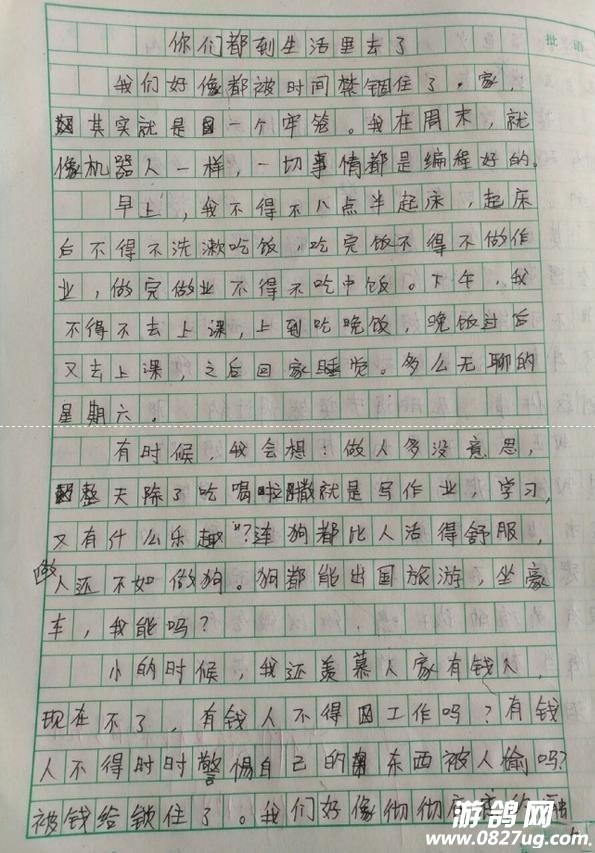 批语
你们都到生活里去了
我们好像都被时间禁锢住了。家,
其实就是一个牢笼。我在周末,就
像机器人一样,一切事情都是编程好的。
早上,我不得不八点半起床,起床
后不得不洗漱吃饭,吃完饭不得不做作
业,做完做业不得不吃中饭。下午,我
不得不去上课,上到吃晚饭,晚饭过后
又去上课,之后回家睡觉。多么无聊的
星期六。
有时候,我会想:做人多没意思,
整天除了吃喝啦撒就是写作业,学习,
又有什么乐趣?连狗都比人活得舒服,
做人还不如做狗。狗都能出国旅游,坐豪
车,我能吗?
小的时候,我还羡慕人家有钱人,
现在不了,有钱人不得工作吗?有钱
人不得时时警惕自己的东西被人偷吗?
被钱给锁住了。我们好像彻彻底底的
游鸽网
www.0827ug.com